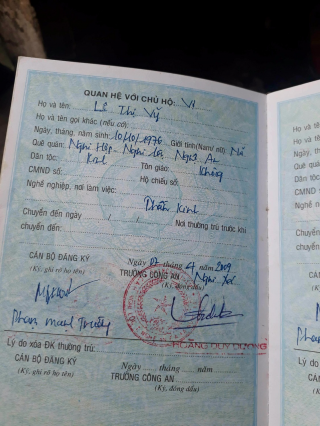 QUAN HỆ VỚI CHỦ HỘ: Vợ
Họ và tên: Lê Thị Vỹ
Họ và tên gọi khác (nếu có):
Ngày, tháng, năm sinh: 10/10/1976 Giới tính (Nam/ nữ) Nữ
Quê quán: Nghi Hợp - Nghi Lộc Nghệ An
Dân tộc: Kinh Tôn giáo: Không
CMND số: Hộ chiếu số:
Nghề nghiệp, nơi làm việc:
Chuyển đến ngày / / Nơi thường trú trước khi
chuyển đến:
Ngày tháng 4 năm 2009
CÁN BỘ ĐĂNG KÝ TRƯỞNG CÔNG AN
(Ký, ghi rõ họ tên) (Ký, đóng dấu)
Phan Mạnh Trường
HOÀNG DUY DƯƠNG
Lý do xóa ĐK thường trú:
Ngày tháng năm
CÁN BỘ ĐĂNG KÝ TRƯỞNG CÔNG AN
(Ký, ghi rõ họ tên) (Ký, đóng dấu)